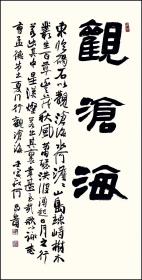 觀滄海
東臨碣石以觀滄海水何澹々山島竦峙樹木
叢生百草豐茂秋風蕭瑟洪波湧起日月之行
若出其中星漢燦爛若出其裏幸甚至哉歌以詠志
曹孟德 夏門行觀滄海